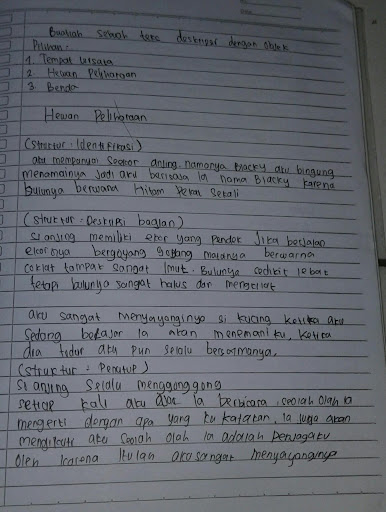 Buatlah sebuah teks deskripsi dengan objek
Pilihan =
1. Tempat wisata
2. Hewan Peliharaan
3. Benda
Hewan Peliharaan
(Struktur : Identifikasi)
aku mempunyai Seekor anjing namanya Blacky aku bingung
menamainya Jadi aku berinama Blacky karena
bulunya berwarna Hitam Pekat Sekali
(Struktur : Deskripsi bagian)
Si anjing memiliki ekor yang Pendek Jika berjalan
ekornya bergoyang goyang matanya berwarna
coklat tampak sangat Imut. Bulunya sedikit lebat
tetapi bulunya sangat halus dan mengkilat
aku sangat menyayanginya si kucing ketika aku
Sedang belajar Ia akan menemaniku, Ketika
dia tidur aku pun selalu bersamanya.
(Struktur : Penutup)
Si anjing Selalu menggonggong
setiap kali aku ajak Ia berbicara seolah olah Ia
mengerti dengan apa yang ku katakan, Ia juga akan
mengikuti aku Seolah olah Ia adalah Penjagaku
Oleh karena Itulah aku sangat menyayanginya